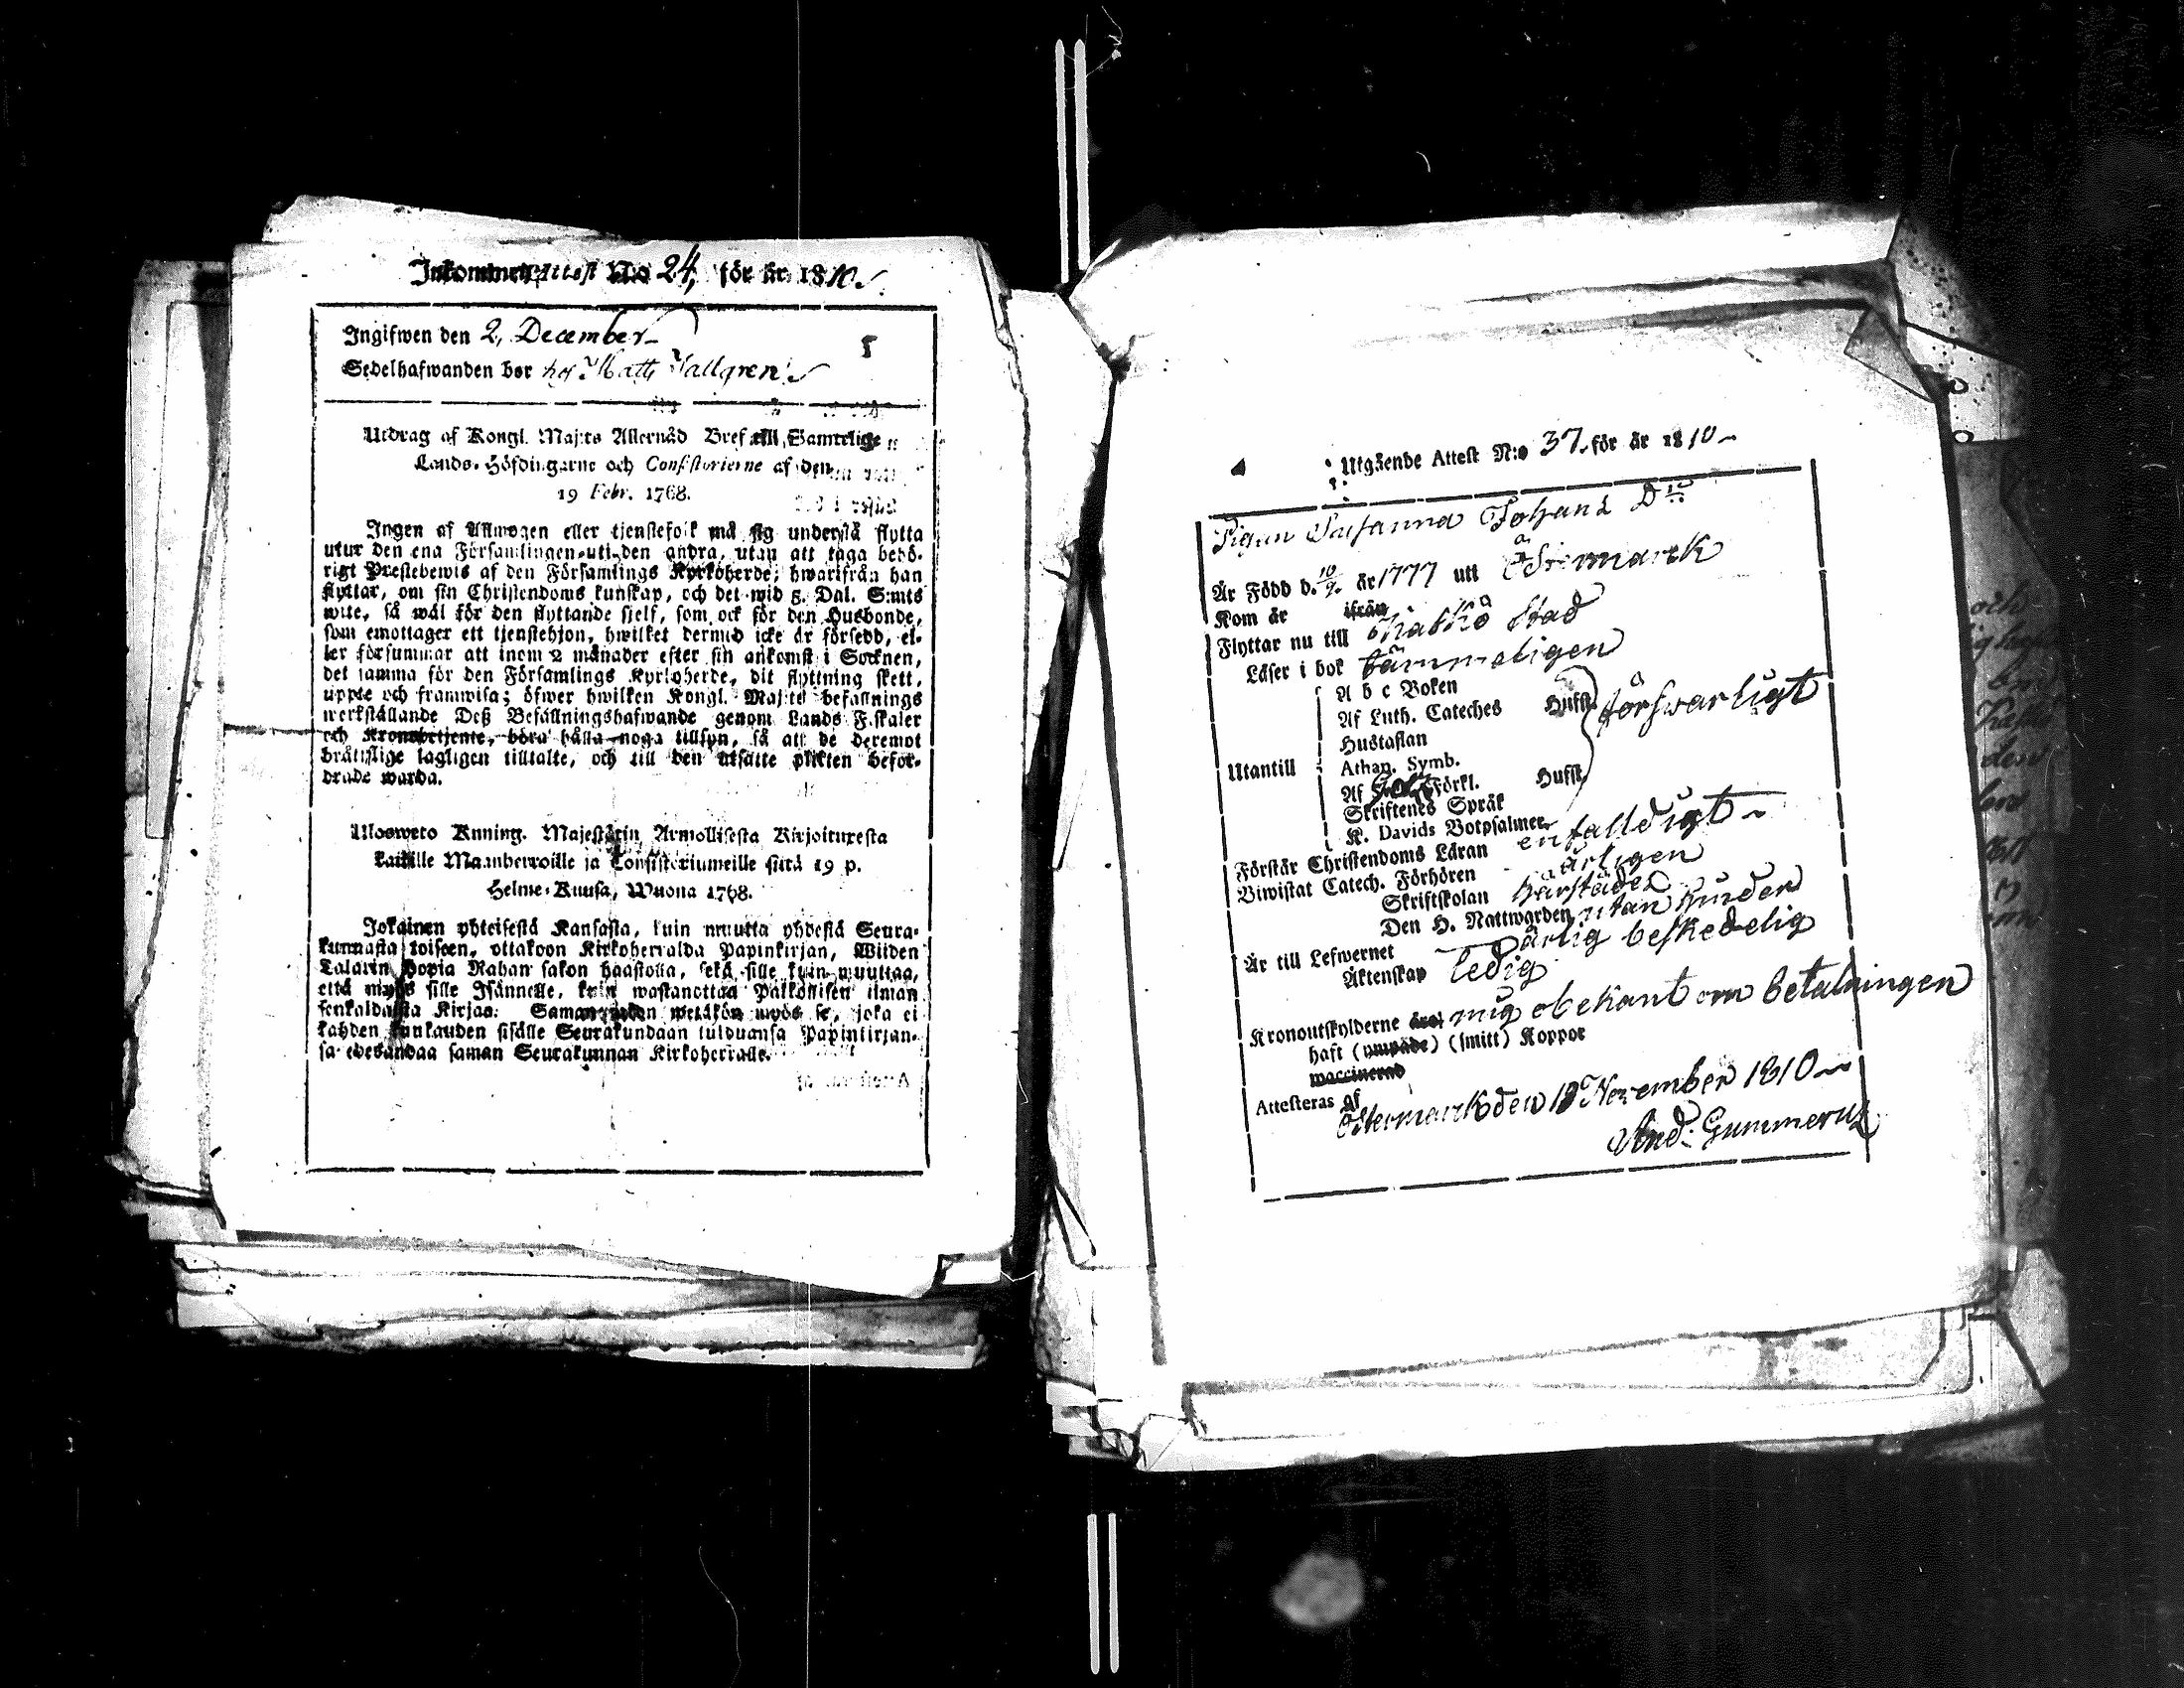 Inkommen Attest No 24, för år 1810.
Ingifwen den 2, December
Sedelhafwanden bor hos Matts Hallgren
Utdrag af Kongl. Maj:ts Allernåd Bref till Samtelige
Lands-Höfdingarne och Consistorierne af den
19 Febr. 1768.
Ingen af Allmogen eller tjenstefolk må sig understå flytta
utur den ena Församlingen uti den andra, utan att taga behö-
rigt Prestebewis af den Församlings Kyrkoherde, hwarifrån han
flyttar, om sin Christendoms kunskap, och det wid 5. Dal. S:mts
wite, så wäl för den flyttande sjelf, som ock för den Husbonde,
som emottager ett tjenstehjon, hwilket dermed icke är försedd, el-
ler försummar att inom 2 månader efter sin ankomst i Socknen,
det samma för den Församlings Kyrkoherde, dit flyttning skett,
uppte och framwisa; öfwer hwilken Kongl. Maj:ts befallnings
werkställande Deß Befallningshafwande genom Lands Fiskaler
och Kronobetjente, böra hålla noga tillsyn, så att de deremot
bråttslige lagligen tilltalte, och till den utsatte plikten befor-
drade warda.
Ulosweto Kuning. Majestätin Armollisesta Kirjoituxesta
kaikille Maanherroille ja Consistoriumeille siitä 19 p.
Helme-Kuusa, Wuona 1768.
Jokainen yhteisestä Kansasta, kuin muutta yhdestä Seura-
kunnasta toiseen, ottakoon Kirkoherralda Papinkirjan, Wiiden
Talarin Hopia Rahan sakon haastolla, sekä sille kuin muuttaa,
että myös sille Isännelle, kuin wastanottaa Palkollisen ilman
senkaldaista Kirjaa. Saman weiäkön myös se, joka ei
kahden kunkauden sisälle Seurakundaan tulduansa Papinkirjan-
sa edesandaa saman Seurakunnan Kirkoherralle.
Utgående Attest N:o 37. för år 1810
Pigan Susanna Johans D:r
Är Född d. 10/9. år 1777 utt Östermarck
Kom år ifrån
Flyttar nu till Kaskö Stad
Läser i bok tämmeligen
A b c Boken
Af Luth. Cateches Hufst. försvarligt
Hustaflan
Utantill Athan. Symb.
Af Förkl. Hufst.
Skriftenes Språk
K. Davids Botpsalmer
Förstår Christendoms Läran enfalldigt
Biwistat Catech. Förhören årligen
Skriftskolan härstädes
Den H. Nattwarden utan hinder
Är till Lefwernet ärlig beskedelig
Äktenskap ledig
Kronoutskylderne äro mig obekant om betalningen
haft (ympade) (smitt) Koppor
waccinerad
Attesteras af
Östermarck den 18 November 1810
And: Gummerus